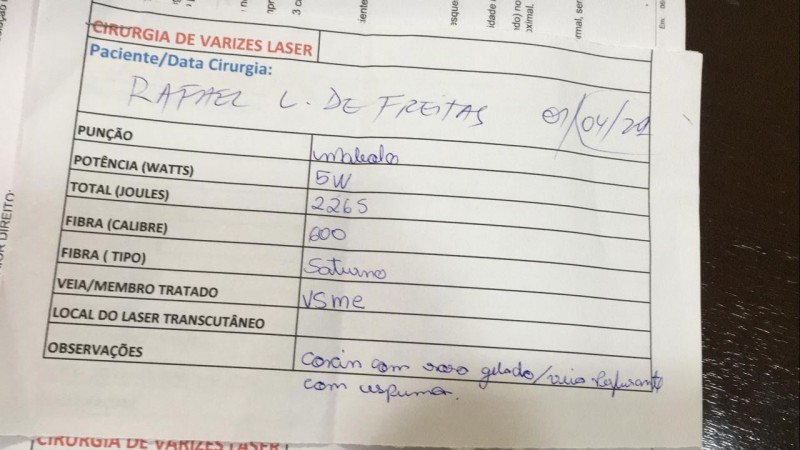 CIRURGIA DE VARIZES LASER
Paciente/Data Cirurgia:
RAFAEL L. DE FREITAS 01/04/20
PUNÇÃO
POTÊNCIA (WATTS) 5W
TOTAL (JOULES) 2265
FIBRA (CALIBRE) 600
FIBRA ( TIPO) Saturno
VEIA/MEMBRO TRATADO VSME
LOCAL DO LASER TRANSCUTÂNEO
OBSERVAÇÕES com soro gelado/veia Perfurante
com espuma.
CIRURGIA DE VARIZES LASER